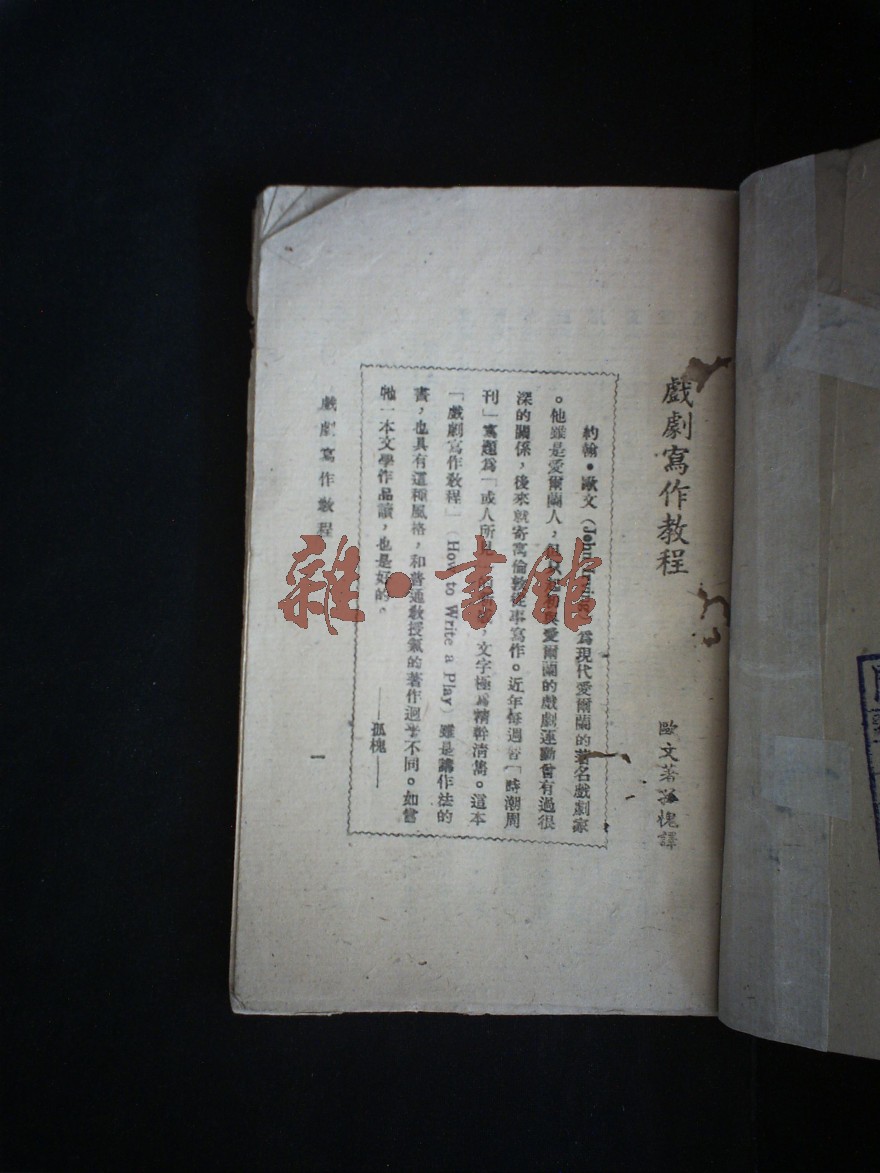 戲劇寫作教程
歐文著 孤槐譯
約翰•歐文(John 爲現代愛爾蘭的著名戲劇家
。他雖是愛爾蘭人,但 與愛爾蘭的戲劇運動曾有過很
深的關係,後來就寄寓倫敦從事寫作。近年每週著「時潮周
刊」寫題爲「或人所見 ,文字極爲精幹清雋。這本
「戲劇寫作教程」(How to Write a Play)雖是講作法的
書,也具有這種風格,和普通敎授氣的著作迥乎不同。如當
牠一本文學作品讀,也是好的。
——孤槐——
戲劇寫作敎程
一
雜•書館